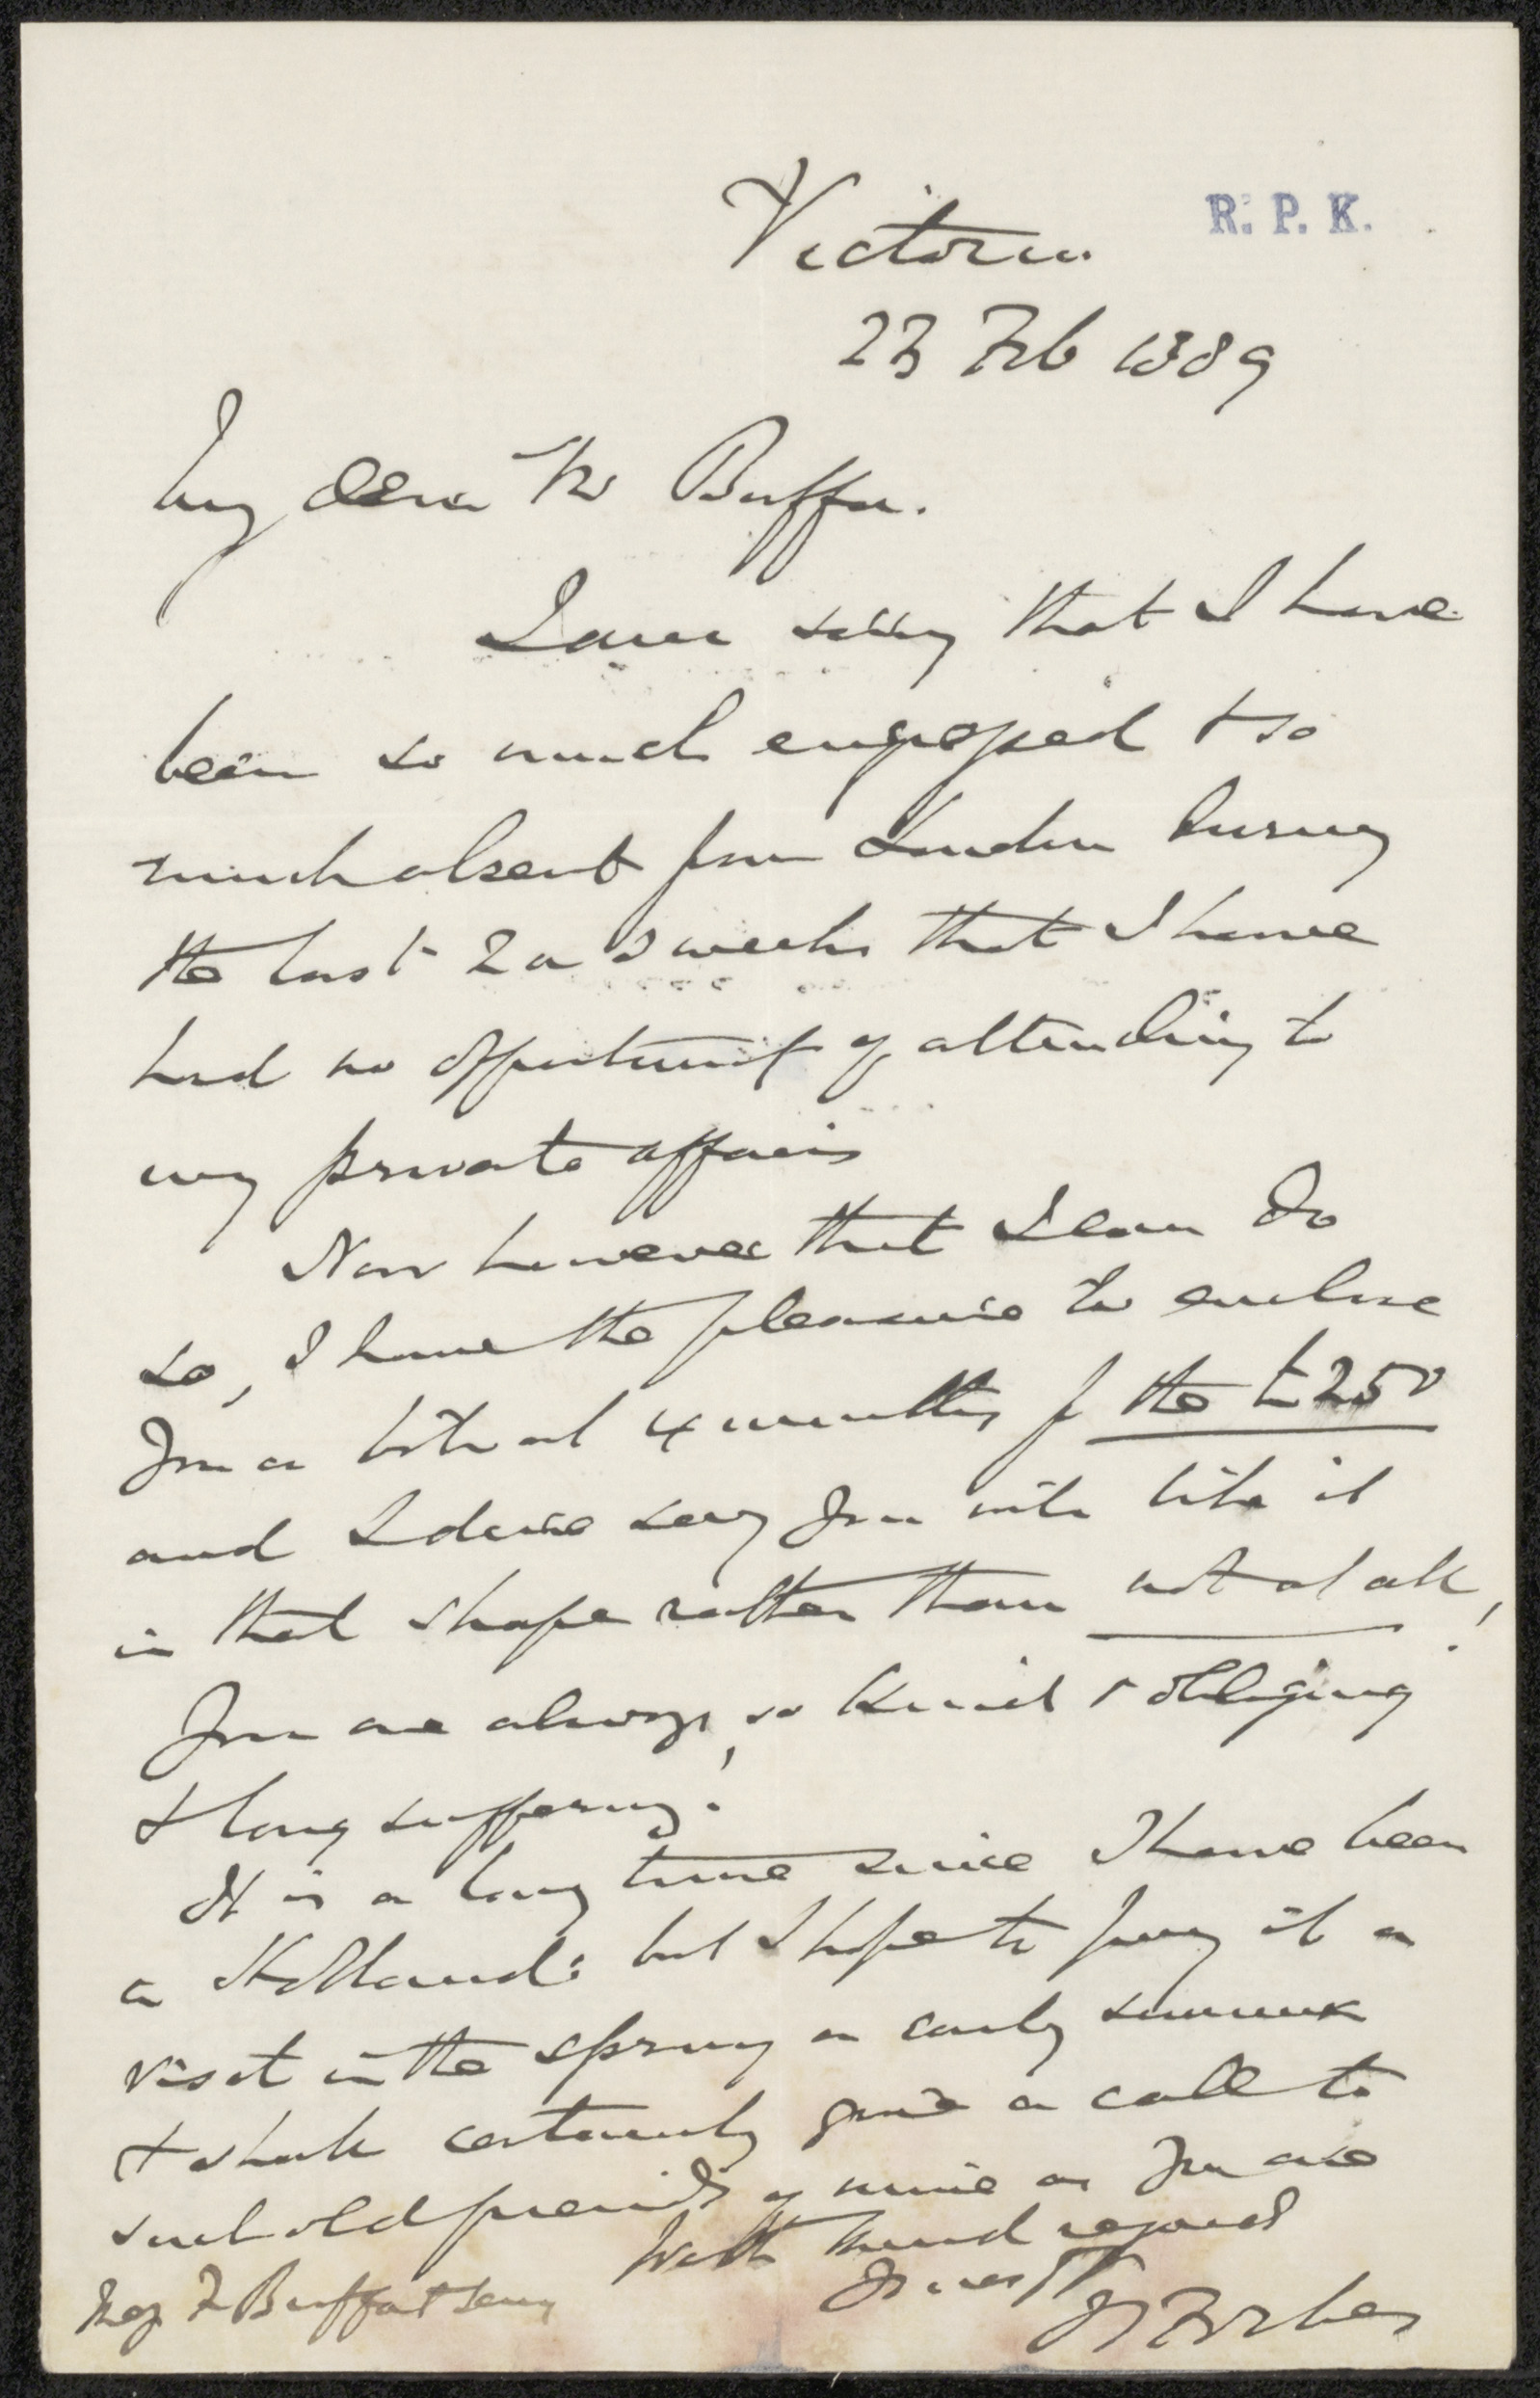 R. P. K.
Victoria.
23 Feb 1889
My dear Mr Buffa.
I am sorry that I have
been so much engaged & so
much absent from London during
the last 2 or 3 weeks that I have
had no opportunity of attending to
my private affairs
Now however that I can do
so, I have the pleasure to enclose
you a bill at 4 months for the £250
and I dare say you will like it
in that shape rather than not at all!
You are always so kind & obliging
& long suffering!
It is a long time since I have been
in Holland: but I hope to pay it a
visit in the spring or early summer
& shall certainly give a call to
such old friends of mine as you are
With kind regards
Yours
J S Forbes
F Buffa & Sons